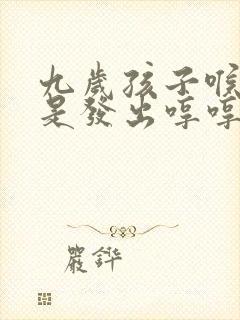 九歲孩子喉
是發出哼哼
嚴鏵